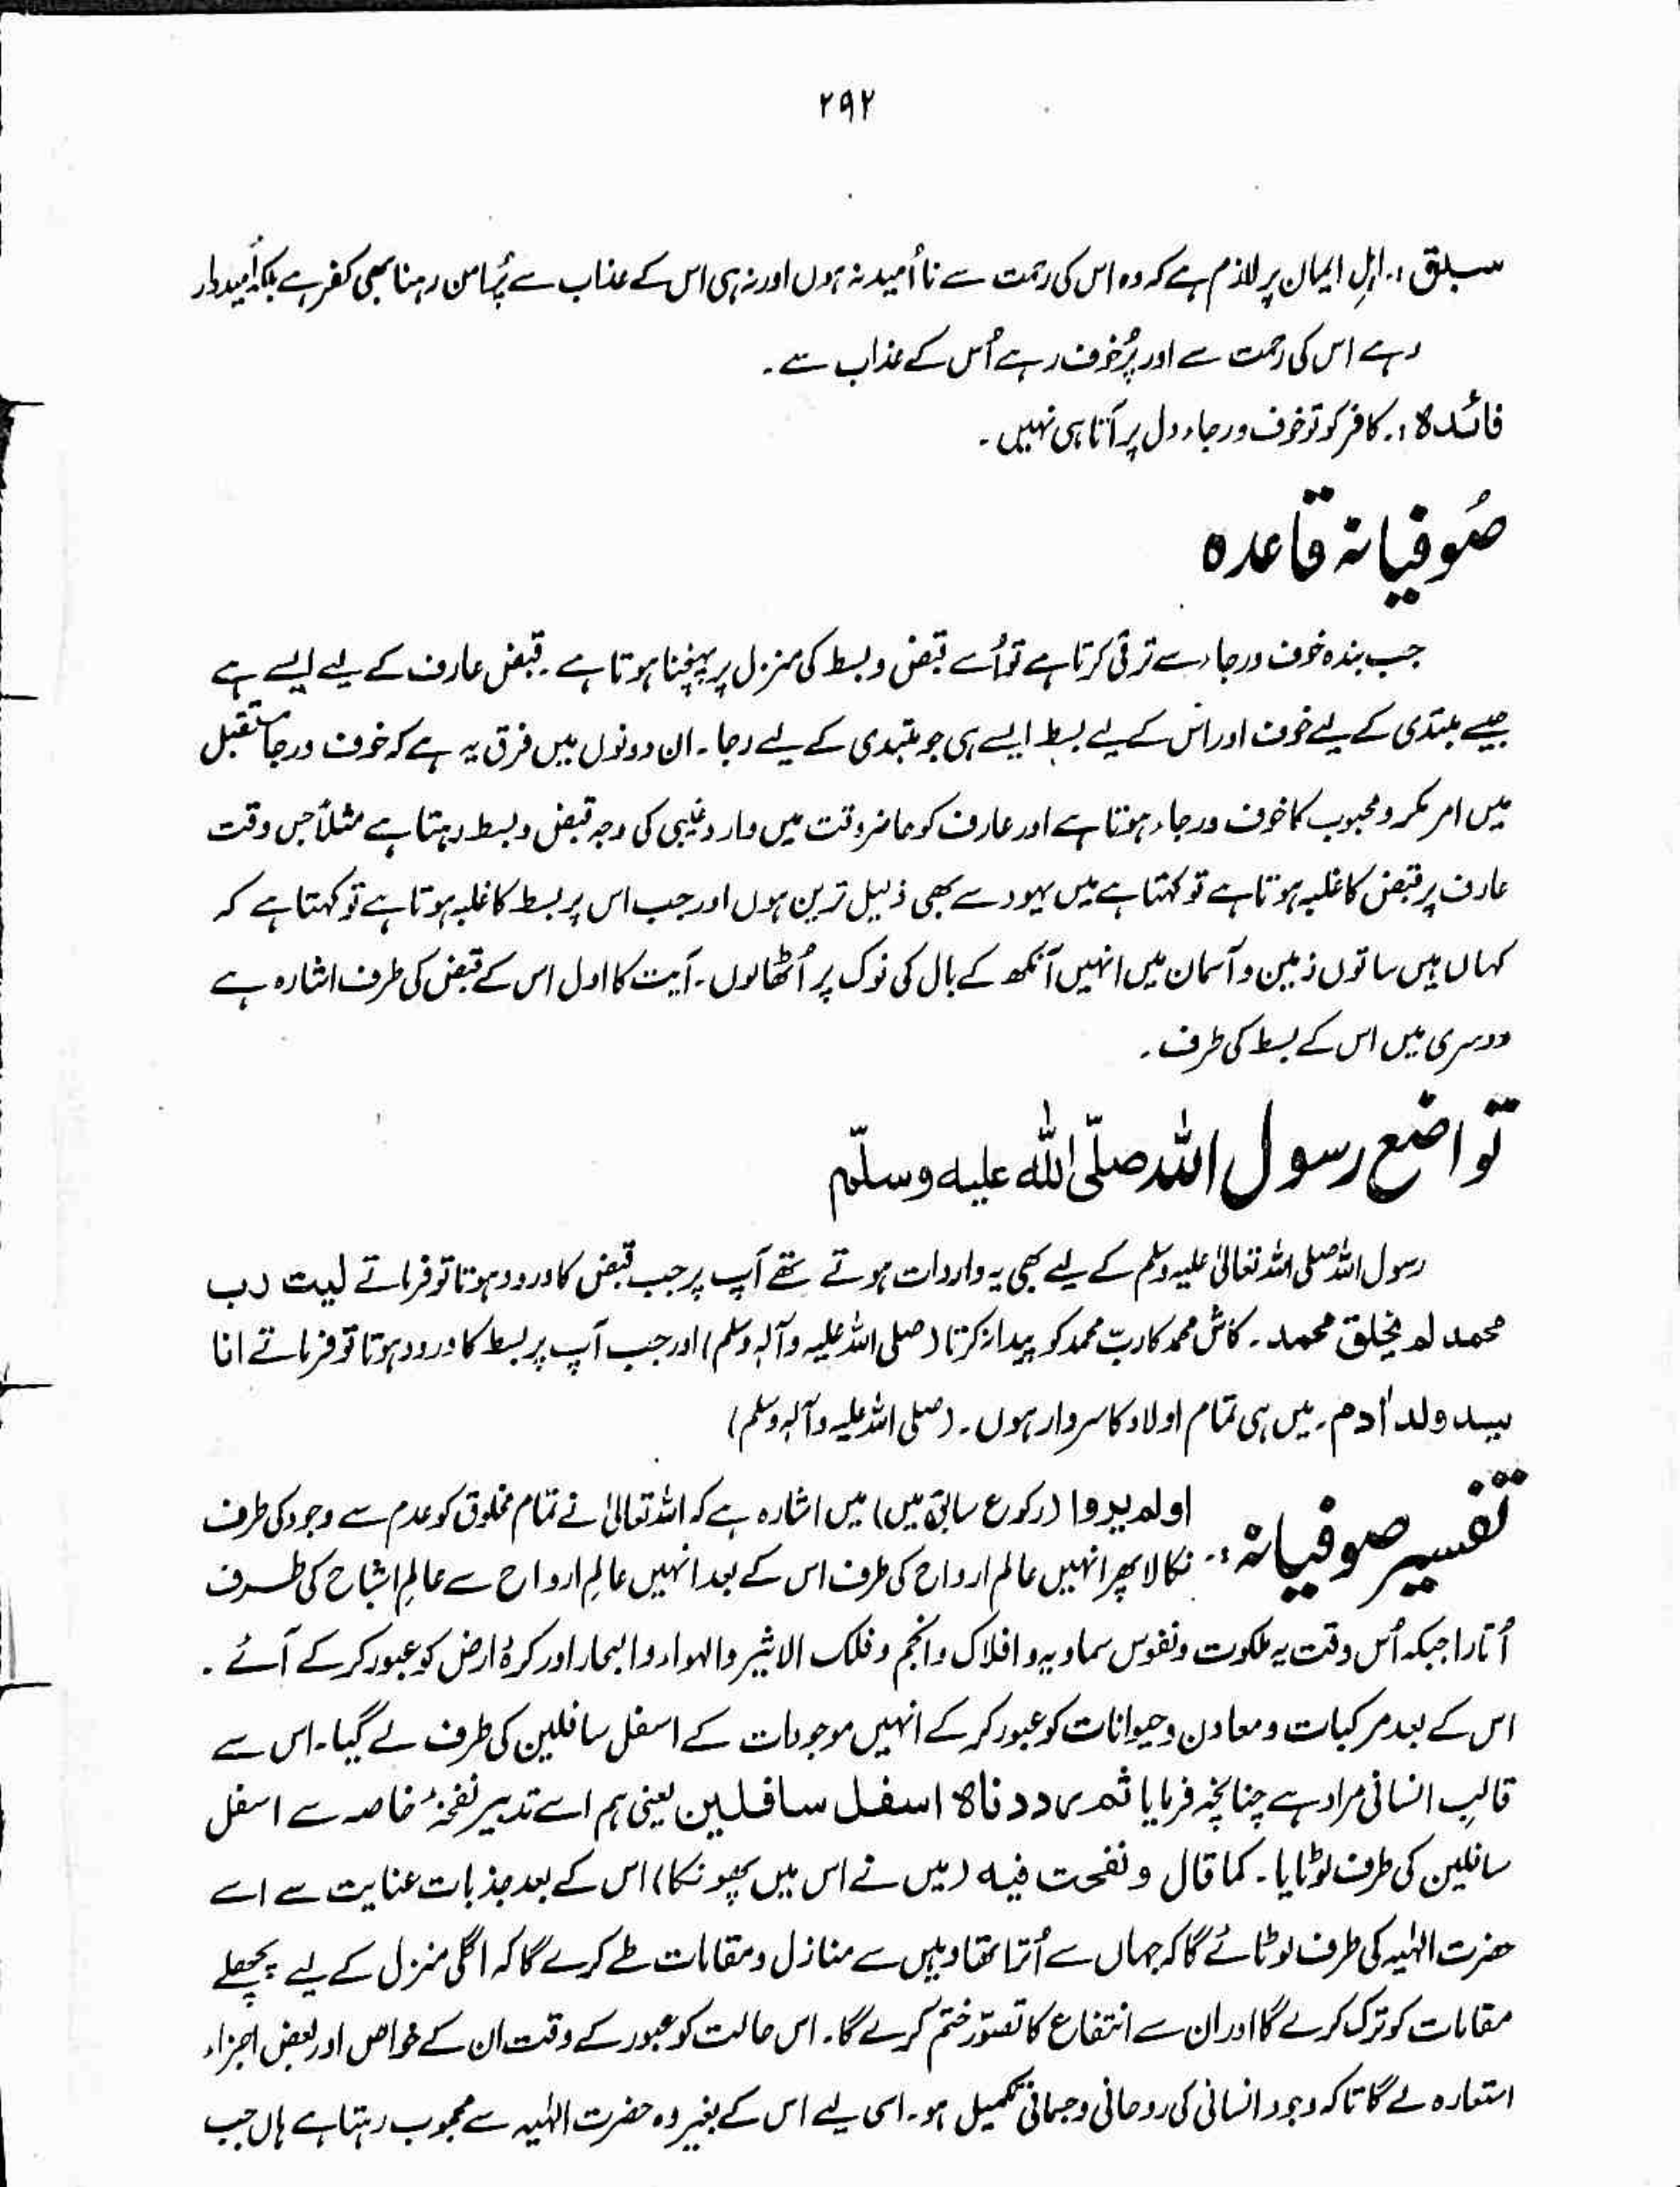 ۲۹۲
سبق :۔ اہلِ ایمان پر لازم ہے کہ وہ اس کی رحمت سے نا اُمید نہ ہوں اور نہ ہی اس کے عذاب سے پُرامن رہنا بھی کفر ہے بلکہ اُمیدوار
رہے اس کی رحمت سے اور پُرخوف رہے اُس کے عذاب سے ۔
فائدہ :۔ کافر کو تو خوف ورجاء دل پر آتا ہی نہیں ۔
صُوفیانہ قاعدہ
جب بندہ خوف ورجاء سے ترقی کرتا ہے تو اُسے قبض و بسط کی منزل پر پہنچنا ہوتا ہے ۔ قبض عارف کے لیے ایسے ہے
جیسے مبتدی کے لیے خوف اور اس کے لیے بسط ایسے ہی جو مبتدی کے لیے رجا ۔ ان دونوں میں فرق یہ ہے کہ خوف ورجا مستقبل
میں امر مکروہ محبوب کا خوف ورجاء ہوتا ہے اور عارف کو حاضر وقت میں وارد غیبی کی وجہ قبض وبسط رہتا ہے مثلاً جس وقت
عارف پر قبض کا غلبہ ہوتا ہے تو کہتا ہے میں یہود سے بھی ذلیل ترین ہوں اور جب اس پر بسط کا غلبہ ہوتا ہے تو کہتا ہے کہ
کہاں ہیں ساتوں زمین و آسمان میں انہیں آنکھ کے بال کی نوک پر اُٹھا لوں ۔ آیت کا اول اس کے قبض کی طرف اشارہ ہے
دوسری میں اس کے بسط کی طرف ۔
تواضع رسول اللہ صلّی اللہ علیہ وسلّم
رسول اللہ صلی اللہ تعالیٰ علیہ وسلم کے لیے بھی یہ واردات ہوتے تھے آپ پر جب قبض کا ورود ہوتا تو فرماتے لیت رب
محمد لم یخلق محمد ۔ کاش محمد کا ربّ محمد کو پیدا نہ کرتا (صلی اللہ علیہ وآلہ وسلم) اور جب آپ پر بسط کا ورود ہوتا تو فرماتے انا
سید ولد اٰدم ۔ میں ہی تمام اولاد کا سردار ہوں ۔ (صلی اللہ علیہ وآلہ وسلم)
تفسیر صوفیانہ :۔ اولم یروا (رکوع سابق میں) میں اشارہ ہے کہ اللہ تعالیٰ نے تمام مخلوق کو عدم سے وجود کی طرف
نکالا پھر انہیں عالم ارواح کی طرف اس کے بعد انہیں عالمِ ارواح سے عالمِ اشباح کی طرف
اُتارا جبکہ اُس وقت یہ ملکوت ونفوس سماویہ و افلاک وانجم وفلک الاثیر والہواء والبحار اور کرۂ ارض کو عبور کر کے آئے ۔
اس کے بعد مرکبات ومعادن وحیوانات کو عبور کر کے انہیں موجودات کے اسفل سافلین کی طرف لے گیا ۔ اس سے
قالبِ انسانی مراد ہے چنانچہ فرمایا ثم رددناہ اسفل سافلین یعنی ہم اسے تدبیر نفخۂ خاصہ سے اسفل
سافلین کی طرف لوٹایا ۔ کما قال ونفخت فیہ (میں نے اس میں پھونکا) اس کے بعد جذبات عنایت سے اسے
حضرت الٰہیہ کی طرف لوٹائے گا کہ جہاں سے اُترا تھا وہیں سے منازل ومقامات طے کرے گا کہ اگلی منزل کے لیے پچھلے
مقامات کو ترک کرے گا اور ان سے انتفاع کا تصوّر ختم کرے گا ۔ اس حالت کو عبور کے وقت ان کے خواص اور بعض اجزاء
استعارہ لے گا تاکہ وجود انسانی کی روحانی وجسمانی تکمیل ہو ۔ اسی لیے اس کے بغیر وہ حضرت الٰہیہ سے محجوب رہتا ہے ہاں جب